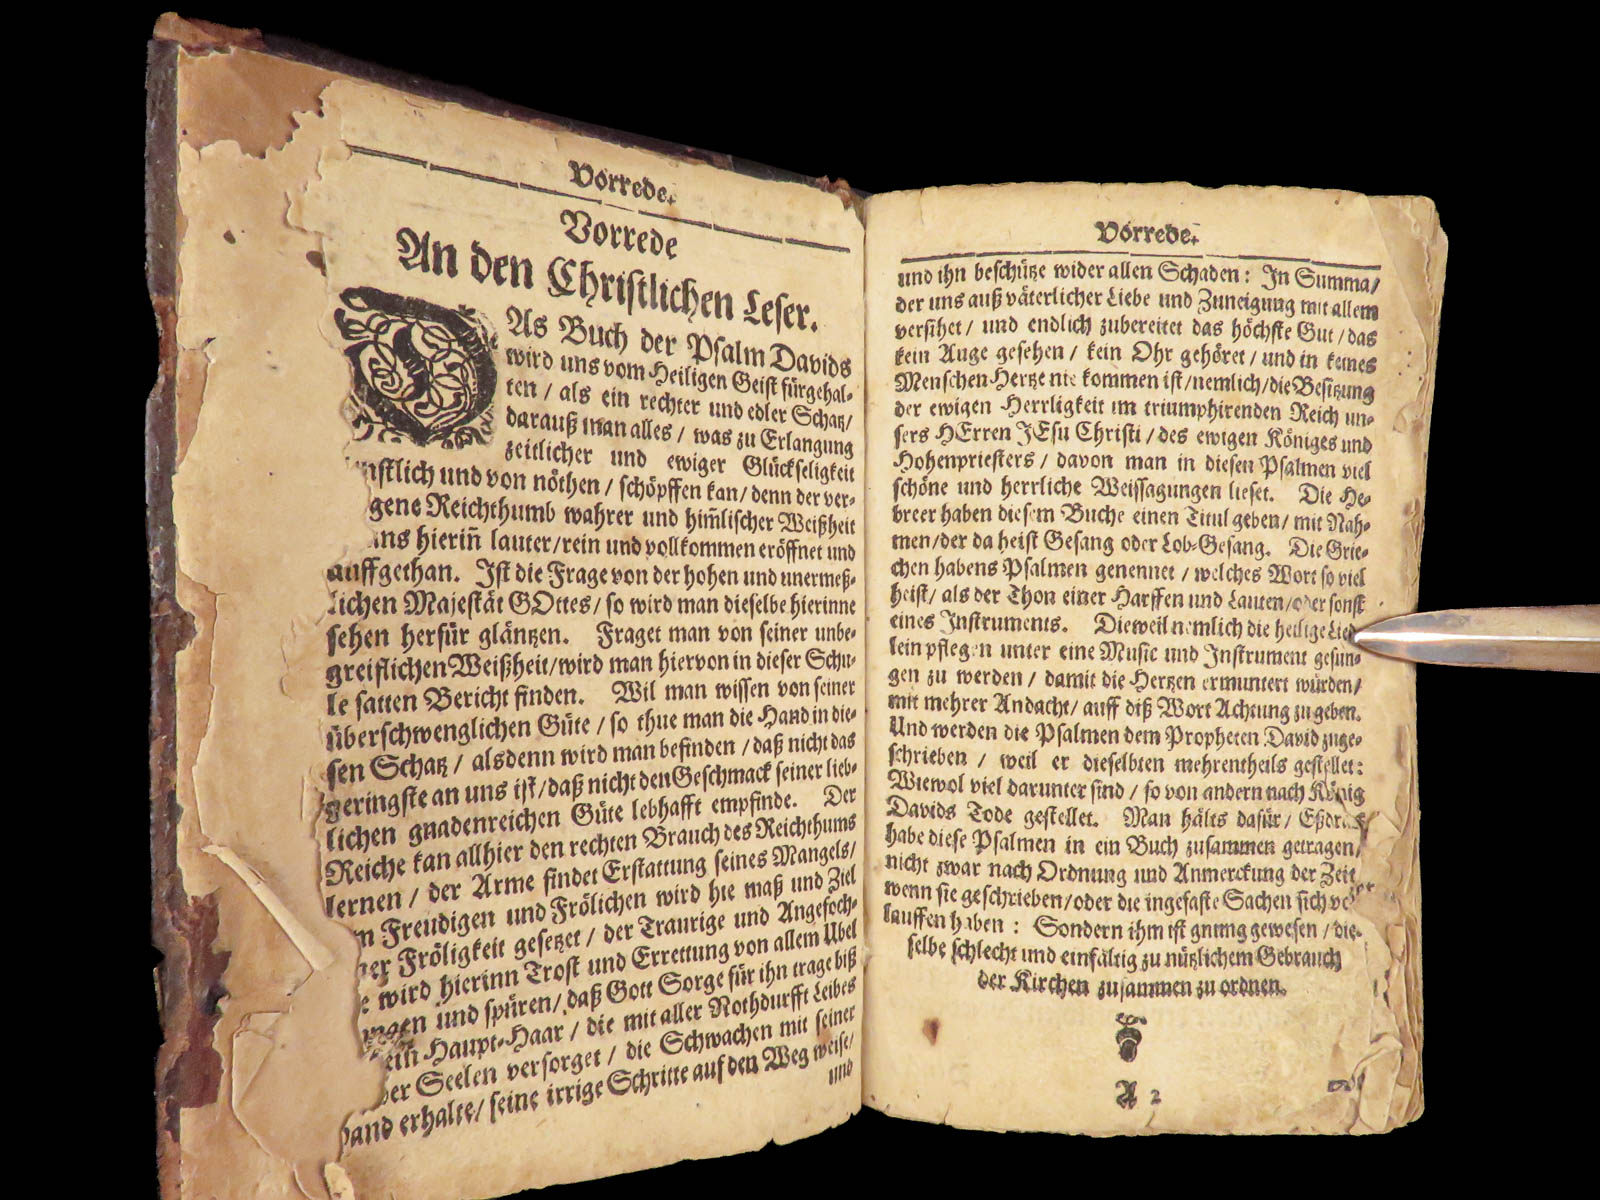 Vorrede.
Vorrede
An den Christlichen Leser.
DAs Buch der Psalm Davids
wird uns vom Heiligen Geist fürgehal-
ten / als ein rechter und edler Schatz /
darauß man alles / was zu Erlangung
zeitlicher und ewiger Glückseligkeit
nstlich und von nöthen / schöpffen kan / denn der ver-
gene Reichthumb wahrer und him̃lischer Weißheit
uns hierin̄ lauter / rein und vollkommen eröffnet und
auffgethan. Ist die Frage von der hohen und unermeß-
lichen Majestät GOttes / so wird man dieselbe hierinne
sehen herfür gläntzen. Fraget man von seiner unbe-
greiflichen Weißheit / wird man hiervon in dieser Schu-
le satten Bericht finden. Wil man wissen von seiner
überschwenglichen Güte / so thue man die Hand in die-
sen Schatz / alsdenn wird man befinden / daß nicht das
geringste an uns ist / daß nicht den Geschmack seiner lieb-
lichen gnadenreichen Güte lebhafft empfinde. Der
Reiche kan allhier den rechten Brauch des Reichthums
lernen / der Arme findet Erstattung seines Mangels /
m Freudigen und Frölichen wird hie maß und Ziel
ner Fröligkeit gesetzet / der Traurige und Angefoch-
e wird hierinn Trost und Errettung von allem Ubel
ngen und spüren / daß Gott Sorge für ihn trage biß
ein Haupt-Haar / die mit aller Nothdurfft Leibes
der Seelen versorget / die Schwachen mit seiner
Hand erhalte / seine irrige Schritte auf den Weg weise /
und
Vorrede.
und ihn beschütze wider allen Schaden : In Summa /
der uns auß väterlicher Liebe und Zuneigung mit allem
versihet / und endlich zubereitet das höchste Gut / das
kein Auge gesehen / kein Ohr gehöret / und in keines
Menschen Hertze nie kommen ist / nemlich / die Besitzung
der ewigen Herrligkeit im triumphirenden Reich un-
sers HErren JEsu Christi / des ewigen Königes und
Hohenpriesters / davon man in diesen Psalmen viel
schöne und herrliche Weissagungen lieset. Die He-
breer haben diesem Buche einen Titul geben / mit Nah-
men / der da heist Gesang oder Lob-Gesang. Die Grie-
chen habens Psalmen genennet / welches Wort so viel
heist / als der Thon einer Harffen und Lauten / oder sonst
eines Instruments. Dieweil nemlich die heilige Lied-
lein pflegen unter eine Music und Instrument gesun-
gen zu werden / damit die Hertzen ermuntert würden /
mit mehrer Andacht / auff diß Wort Achtung zu geben.
Und werden die Psalmen dem Propheten David zuge-
schrieben / weil er dieselbten mehrentheils gestellet :
Wiewol viel darunter sind / so von andern nach König
Davids Tode gestellet. Man hälts dafür /
habe diese Psalmen in ein Buch zusammen getragen /
nicht zwar nach Ordnung und Anmerckung der Zeit
wenn sie geschrieben / oder die ingefaste Sachen sich ver
lauffen haben : Sondern ihm ist gnung gewesen / die-
selbe schlecht und einfältig zu nützlichem Gebrauch
der Kirchen zusammen zu ordnen.
A 2